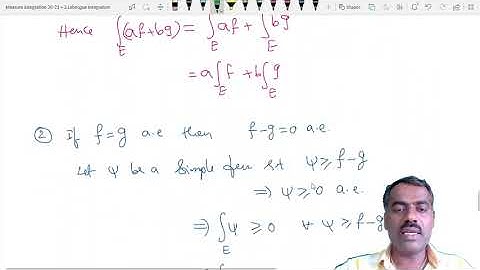 Measure Integration 20-21 • 2.Lebesgue Integration
Hence ∫_E (af+bg) = ∫_E af + ∫_E bg
= a∫_E f + b∫_E g
② If f = g a.e then f-g = 0 a.e.
Let ψ be a Simple fcn s.t ψ ≥ f-g
⇒ ψ ≥ 0 a.e.
⇒ ∫_E ψ ≥ 0 ∀ ψ ≥ f-g